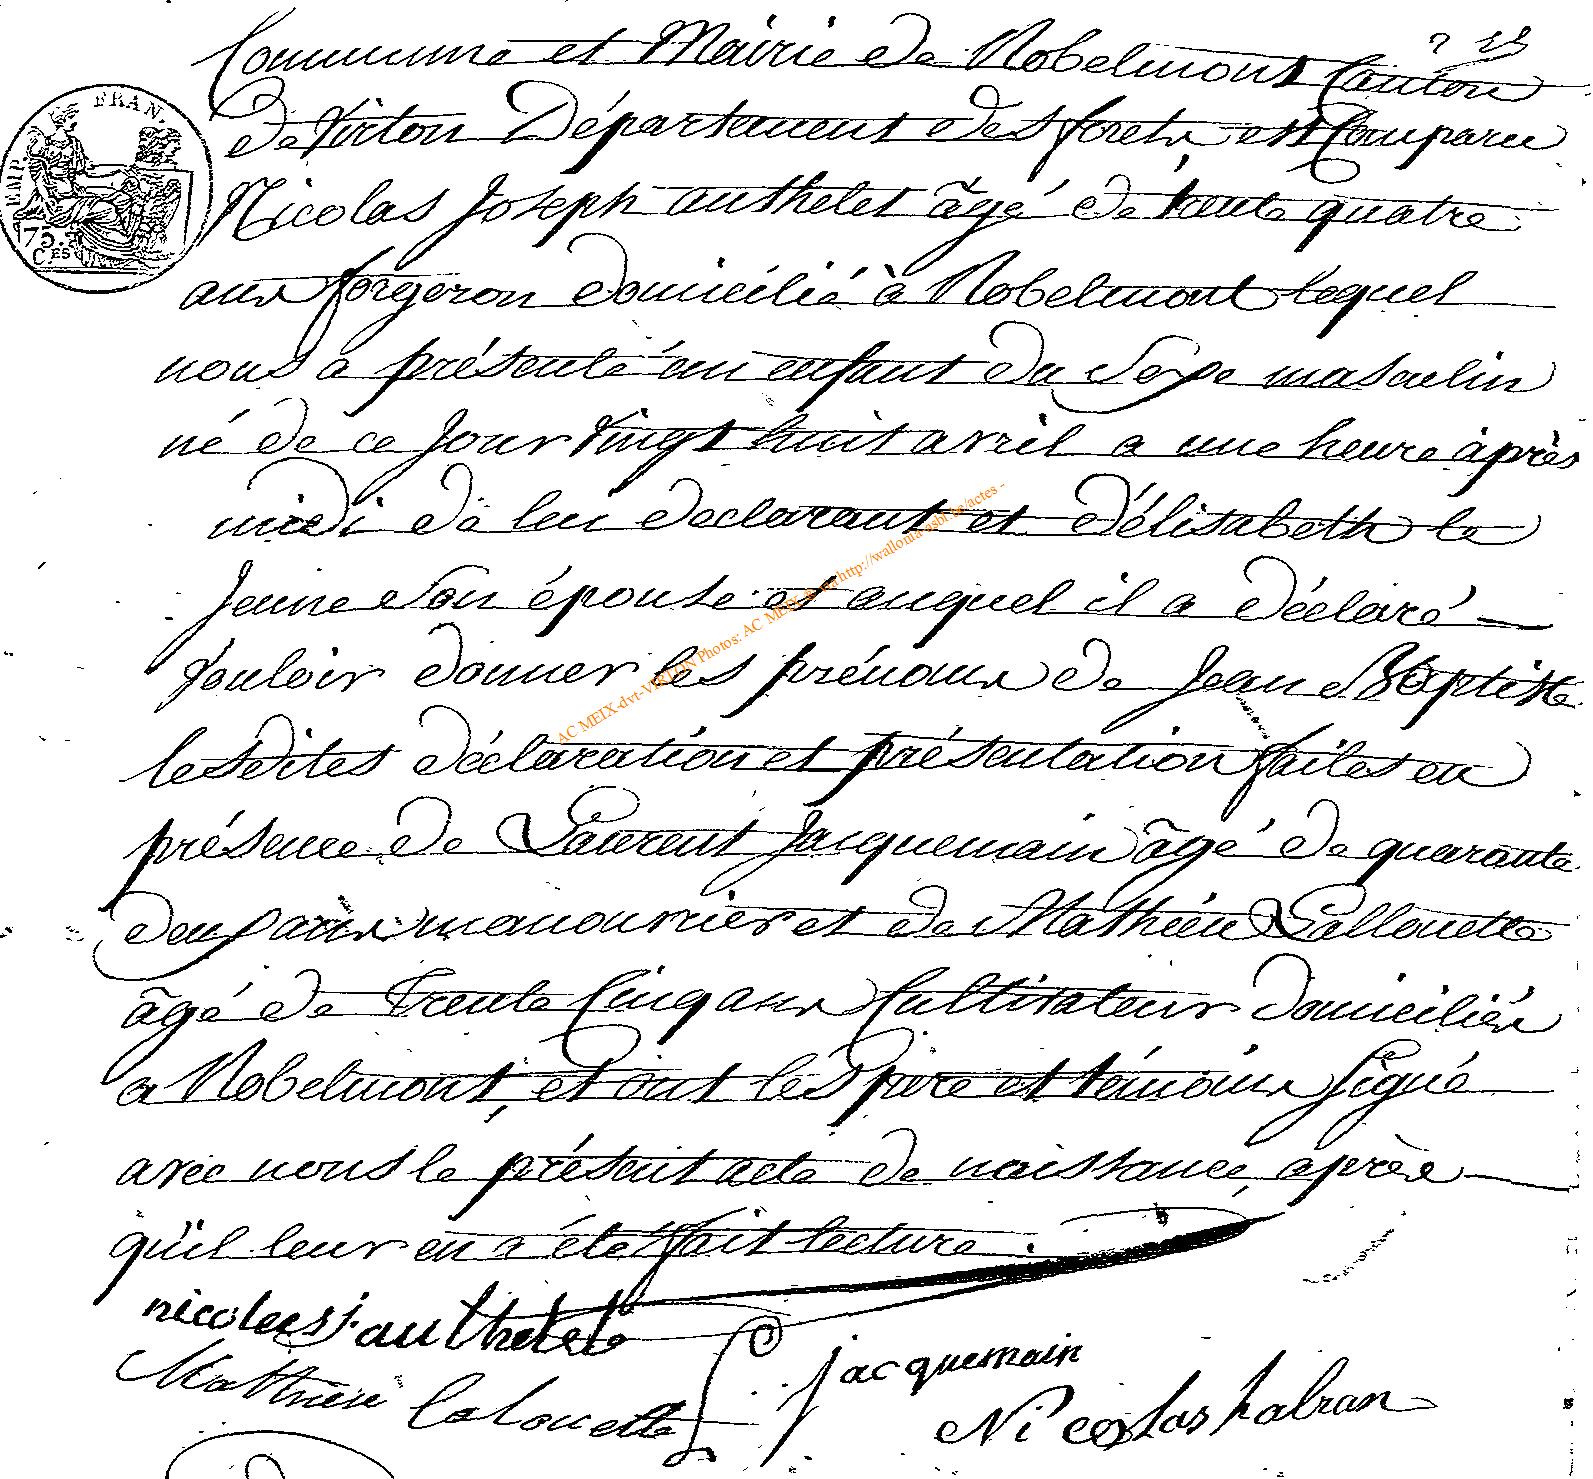 Commune et Mairie de Robelmont Canton
de Virton Département des forets, est Comparu
Nicolas Joseph authelet âgé de trente quatre
ans forgeron domicilié à Robelmont lequel
nous a présenté un enfant du Sexe masculin
né de ce Jour vingt huit avril a une heure après
midi de lui declarant et d'élisabeth le
Jeune son épouse et auquel il a déclaré
Vouloir donner les prénoms de Jean Baptiste
lesdites déclaration et présentation faites en
présence de Laurent Jacquemain âgé de quarante
deux ans manouvrier et de Mathieu Lallouette
âgé de Trente Cinq ans Cultivateur domiciliés
a Robelmont, et ont lés père et témoins signé
avec nous le présent acte de naissance, après
qu'il leur en a été fait lecture.
nicolas j. authelet
jacquemain
Mathieu lalouette
Nicolas
EMP. FRAN.
75.
CES
AC MEIX-dvt-VIRTON Photos: AC MEIX